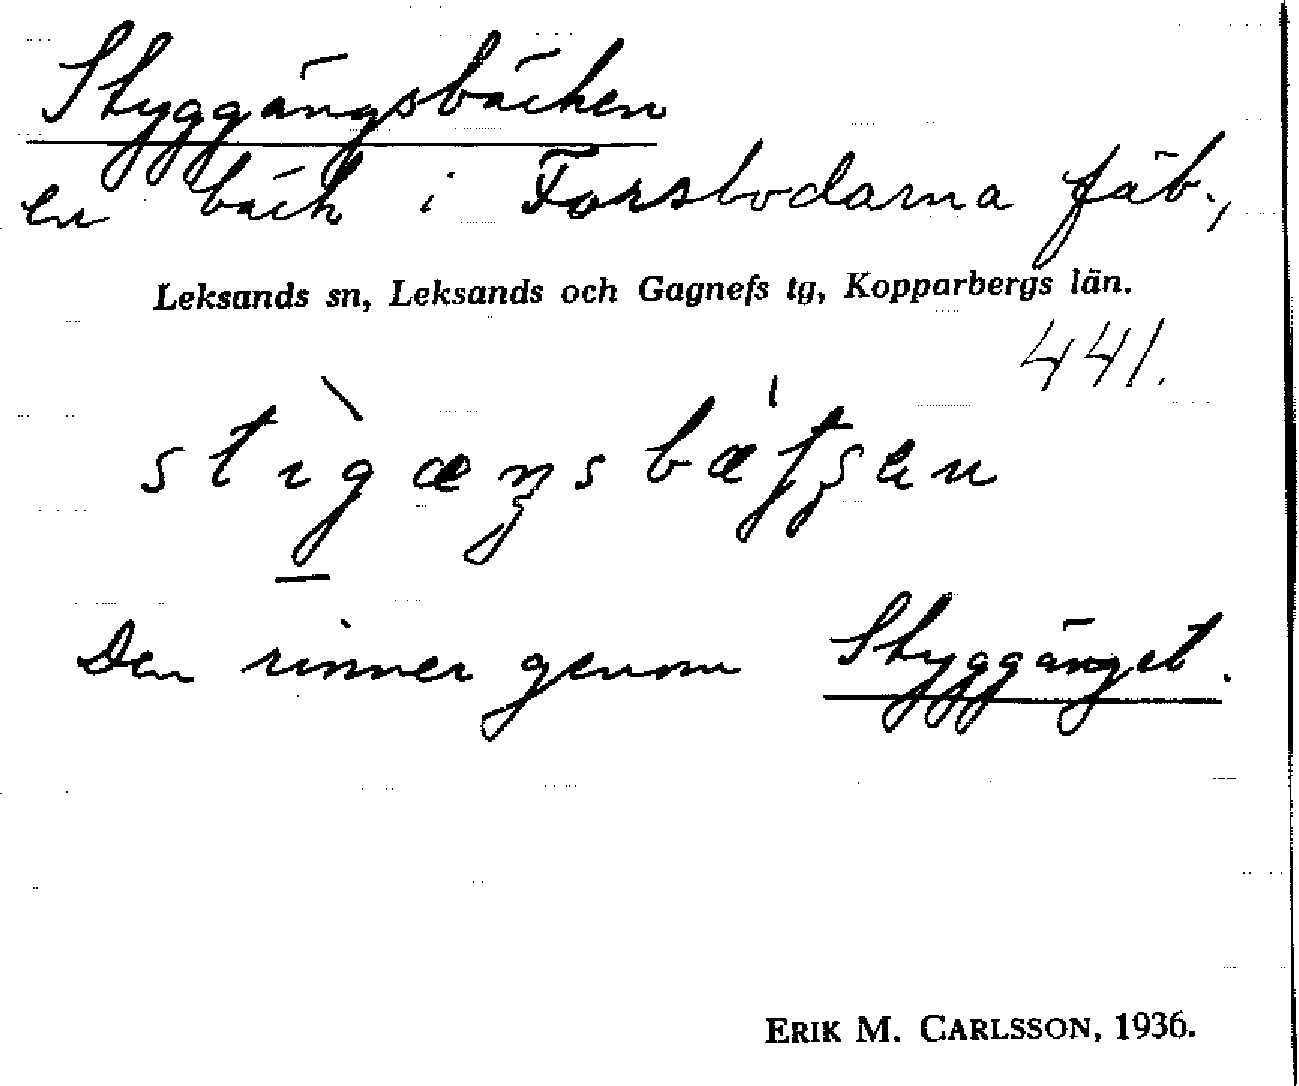 Styggängsbäcken
en bäck i Forsbodarna fäb.,
Leksands sn, Leksands och Gagnefs tg, Kopparbergs län.
441.
Den rinner genom Styggänget.
ERIK M. CARLSSON, 1936.